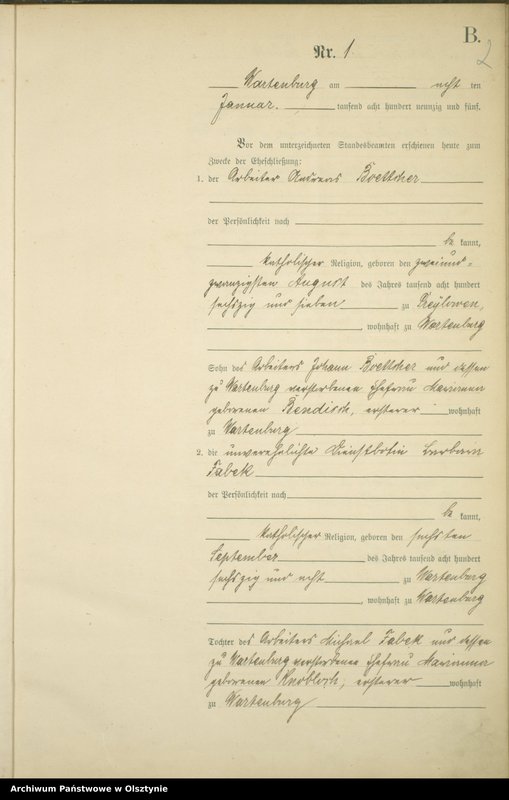 B.
2
Nr. 1
Wartenburg am acht ten
Januar. tausend acht hundert neunzig und fünf.
Vor dem unterzeichneten Standesbeamten erschienen heute zum
Zwecke der Eheschließung:
1. der Arbeiter Andreas Boettcher
der Persönlichkeit nach
be kannt,
katholischer Religion, geboren den zweiund=
zwanzigsten August des Jahres tausend acht hundert
sechszig und sieben zu Preylowen,
, wohnhaft zu Wartenburg
Sohn des Arbeiters Johann Boettcher und dessen
zu Wartenburg verstorbenen Ehefrau Marianna
geborenen Bendisch, ersterer wohnhaft
zu Wartenburg
2. die unverehelichte Dienstbotin Barbara
Fabek
der Persönlichkeit nach
be kannt,
katholischer Religion, geboren den sechsten
September des Jahres tausend acht hundert
sechszig und acht zu Wartenburg
, wohnhaft zu Wartenburg
Tochter des Arbeiters Michael Fabek und dessen
zu Wartenburg verstorbene Ehefrau Marianna
geborenen Knobloch, ersterer wohnhaft
zu Wartenburg
Archiwum Państwowe w Olsztynie